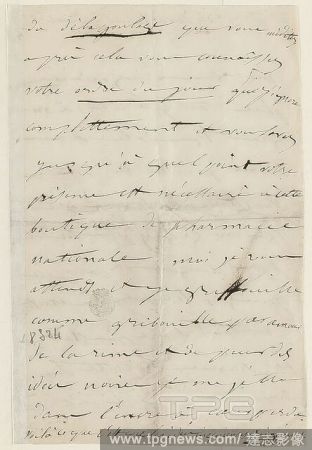 du délassement que vous méditez
après cela vous connaissez
votre ordre du jour que j'ignore
complettement et vous savez
jusqu'à quel point votre
présence est nécessaire à cette
boutique de pharmacie
nationale moi je vous
attends et je gribouille
comme gribouille par amour
de la rime et de peur des
idées noires je me jette
dans l'encre
voilà ce que
8324
TPG
www.tpgnews.com/達志影像